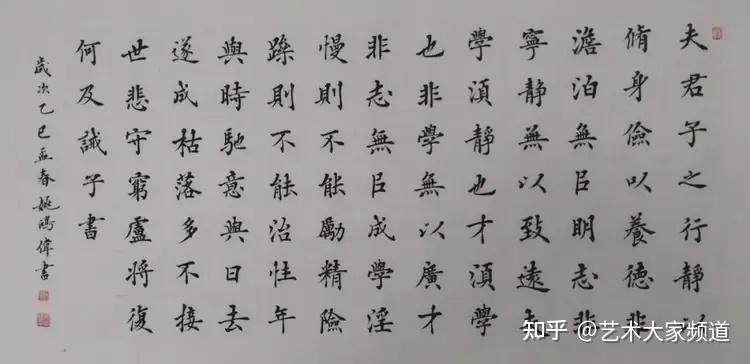 夫君子之行静以
脩身儉以養德非
澹泊無㠯明志非
寧静無以致遠夫
學湏静也才湏學
也非學無以廣才
非志無㠯成學淫
慢則不能勵精險
躁則不能治性年
與時馳意與日去
遂成枯落多不接
世悲守窮廬將復
何及誡子書
歲次乙巳孟春姚鴻偉書
知乎 @艺术大家频道